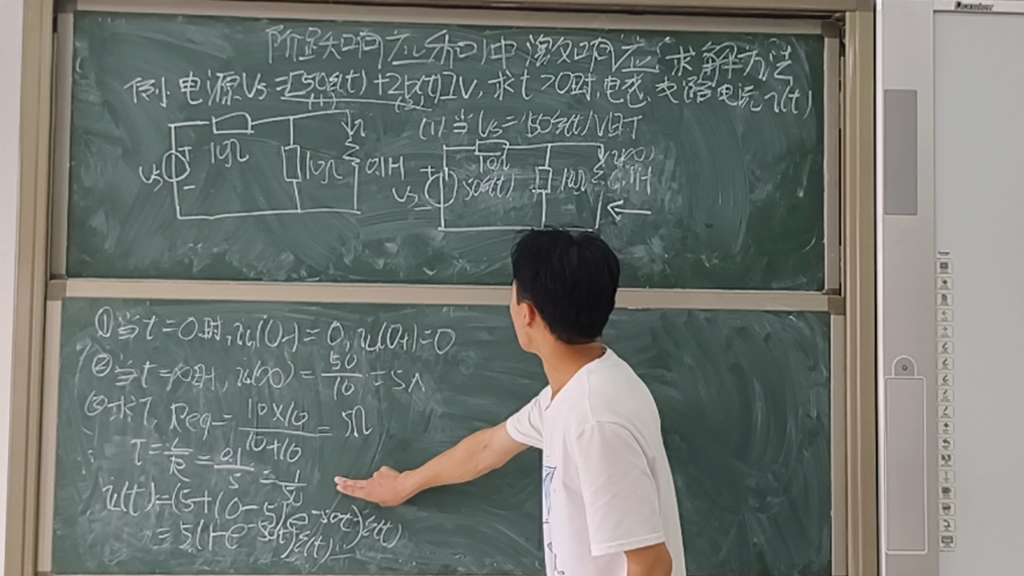 阶跃响应和冲激响应求解方法
例1 电源Vs=[50ε(t)+2δ(t)]V,求t>0时,电感支路电流i(t)
(1) (2)
(1)当Vs=50ε(t)V时
10Ω
10Ω
0.1H
Vs
+
-
10Ω
50ε(t)
10Ω
0.1H
Vs
+
①当t=0时,iL(0-)=0,iL(0+)=0
②当t=∞时,iL(∞)=50/10=5A
③求τ,Req=10×10/10+10=5Ω
τ=L/R=0.1/5=1/50
iL(t)=(5+(0-5)e^-50t)ε(t)
=5(1-e^-50t)ε(t)